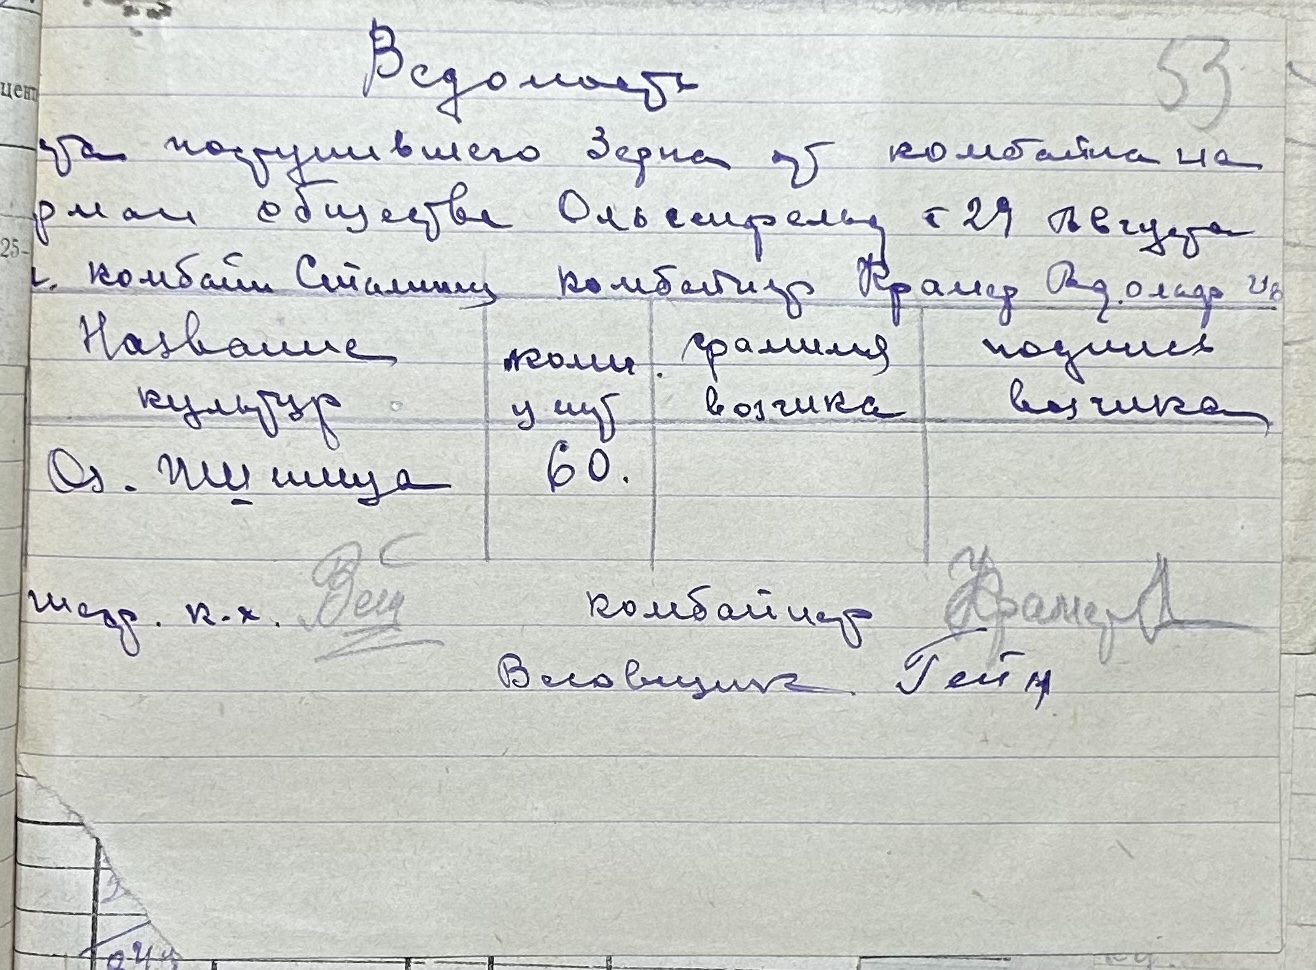 53
Ведомость
поступившего Зерна от комбайна на
общества Ольгенфельд с 29 Августа
комбайн Сталинец комбайнер Крамер
Название культур
колич. пуд
фамилия возчика
подпись возчика
Оз. Пшиница
60.
к-х.
комбайнер Крамер
Весовщик Гейн